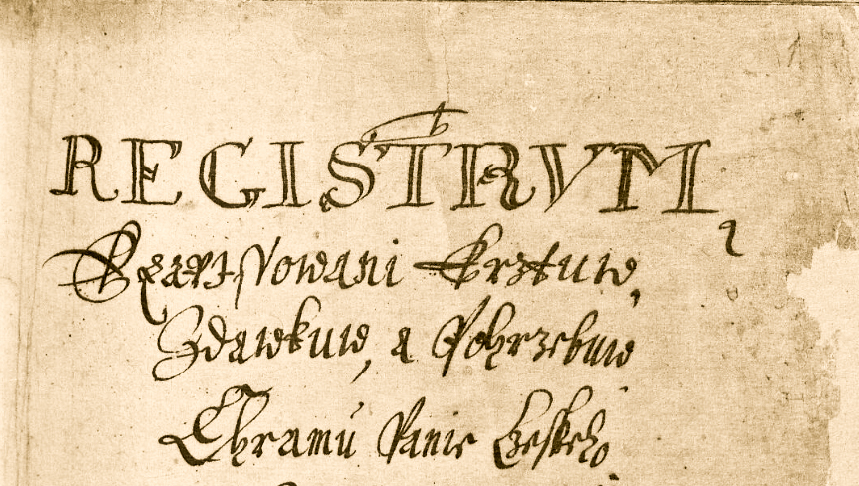 REGISTRVM,
Kzapisowani Krztuw,
Zdawkuw, a Pohrzebuw
Chramú Panie Czeskeho